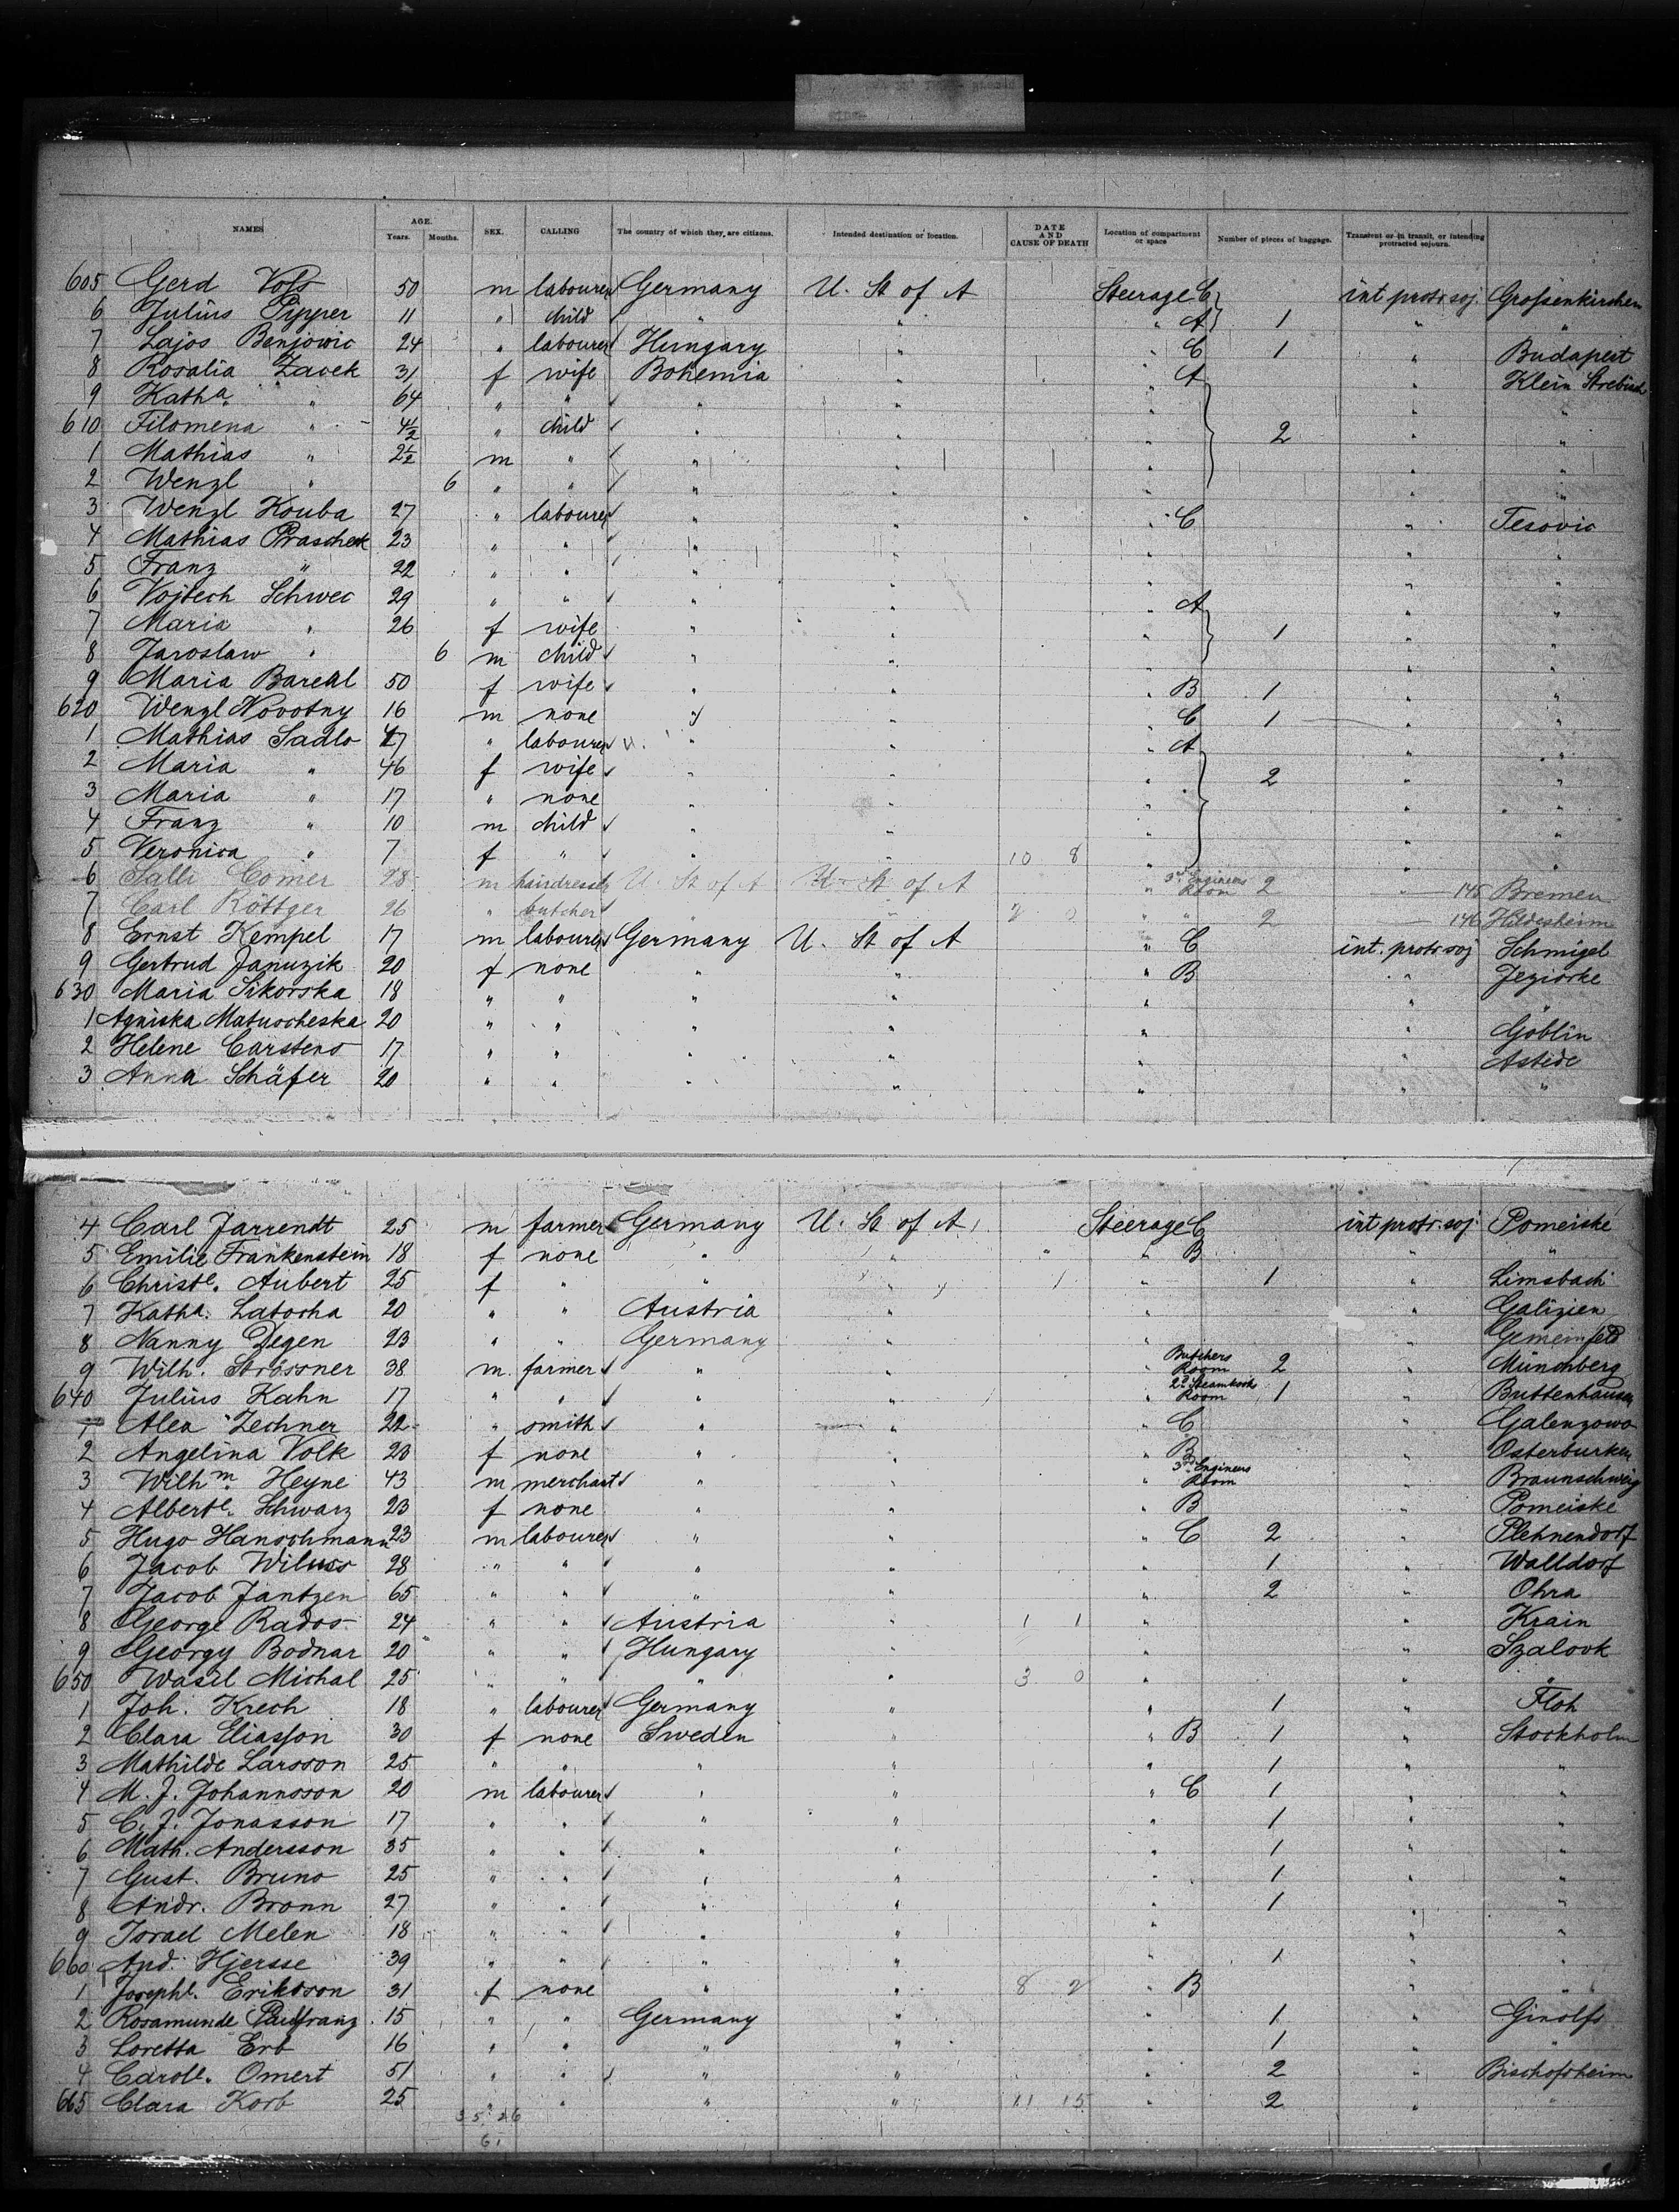 NAMES AGE. Years. Months. SEX. CALLING The country of which they are citizens. Intended destination or location. DATE AND CAUSE OF DEATH Location of compartment or space Number of pieces of baggage. Transient or in transit, or intending protracted sojourn.
605 Gerd Vols 50 m labourer Germany U. St of A Steerage C int protr. soj. Grossenkirchen
6 Julius Pypper 11 " child " " " A 1 " "
7 Lajos Benjovic 24 " labourer Hungary " " C 1 " Budapest
8 Rosalia Zacek 31 f wife Bohemia " " A " Klein Strebisch
9 Katha. " 64 " " " " " " "
610 Filomena " 4½ " child " " " 2 " "
1 Mathias " 2½ m " " " " " "
2 Wenzl " 6 " " " " " " "
3 Wenzl Kouba 27 " labourer " " " C " Tesovic
4 Mathias Praschek 23 " " " " " " "
5 Franz " 22 " " " " " " "
6 Vojtech Schwec 29 " " " " " A " "
7 Maria " 26 f wife " " " 1 " "
8 Jaroslaw " 6 m child " " " " "
9 Maria Bareal 50 f wife " " " B 1 " "
620 Wenzl Novotny 16 m none " " " C 1 " "
1 Mathias Sadlo 47 " labourer " " " A " "
2 Maria " 46 f wife " " " 2 " "
3 Maria " 17 " none " " " " "
4 Franz " 10 m child " " " " "
5 Veronica " 7 f " " " 10 8 " " "
6 Salli Comer 28 m hairdresser U. St of A U. St of A " 3rd Engineers Room 2 " 145 Bremen
7 Carl Röttger 26 " butcher " " 2 0 " " 2 146 Hildesheim
8 Ernst Kempel 17 m labourer Germany U. St of A " C int. protr. soj Schmigel
9 Gertrud Januzik 20 f none " " " B " Jeziorke
630 Maria Sikorska 18 " " " " " " "
1 Agniska Matuscheska 20 " " " " " " Goblin
2 Helene Carstens 17 " " " " " " Astede
3 Anna Schäfer 20 " " " " " " "
4 Carl Jarrendt 25 m farmer Germany U. St of A Steerage C int protr. soj. Pomeiske
5 Emilie Frankenstein 18 f none " " " B " "
6 Christe. Aubert 25 f " " " " 1 " Limsbach
7 Katha. Latocha 20 " " Austria " " " Galizien
8 Nanny Degen 23 " " Germany " " " Gemeinfeld
9 Wilh. Strössner 38 m. farmer " " Butchers Room 2 " Münchberg
640 Julius Kahn 17 " " " " " 2d Steamcook Room 1 " Buttenhausen
1 Alex Zechner 22 " smith " " " C " Galenzowo
2 Angelina Volk 20 f none " " " B " Osterburken
3 Wilhm. Heyne 43 m merchant " " " 3rd Engineers Room " Braunschweig
4 Alberte. Schwarz 23 f none " " " B " Pomeiske
5 Hugo Hanschmann 23 m labourer " " " C 2 " Plehnendorf
6 Jacob Wiluss 28 " " " " " 1 " Walldorf
7 Jacob Jantzen 65 " " " " " 2 " Ohra
8 George Rados 24 " " Austria " 1 1 " " Krain
9 Georgy Bodnar 20 " " Hungary " " " Szalook
650 Wasil Michal 25 " " " " 3 0 " " "
1 Joh. Krech 18 " labourer Germany " " 1 " Floh
2 Clara Eliasson 30 f none Sweden " " B 1 " Stockholm
3 Mathilde Larsson 25 " " " " " 1 " "
4 M. J. Johannsson 20 m labourer " " " C 1 " "
5 C. J. Jonasson 17 " " " " " 1 " "
6 Math. Andersson 35 " " " " " 1 " "
7 Gust. Bruno 25 " " " " " 1 " "
8 Andr. Bronn 27 " " " " " 1 " "
9 Israel Melen 18 " " " " " " "
660 And. Hjersse 39 " " " " " 1 " "
1 Josephe. Eriksson 31 f none " " 8 2 " B " "
2 Rosamunde 15 " " Germany " " 1 " Ginolfs
3 Loretta Erb 16 " " " " " 1 " "
4 Carole. Omert 51 " " " " " 2 " Bischofsheim
665 Clara Korb 25 " " " " 11 15 " 2 " "
35 26
61